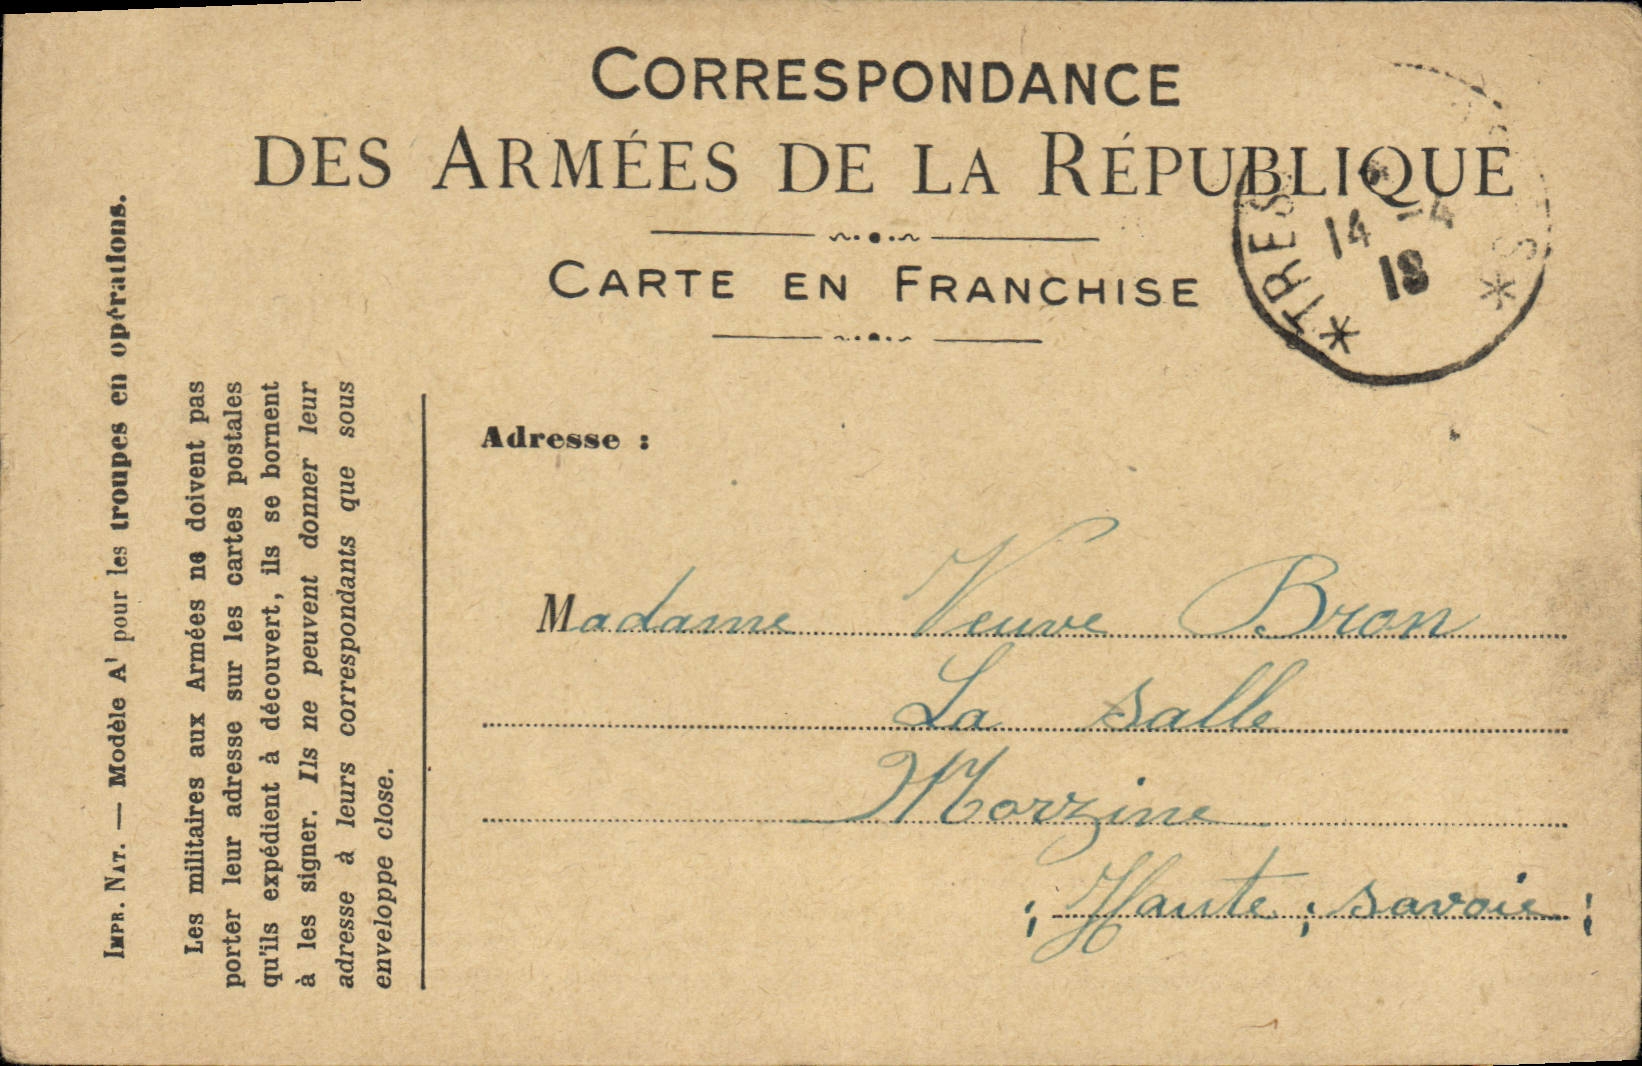 CORRESPONDANCE
DES ARMÉES DE LA RÉPUBLIQUE
CARTE EN FRANCHISE
TRES
14 -4
18
Adresse :
Madame Veuve Bron
La salle
Morzine
Haute savoie
IMPR. NAT. — Modèle A¹ pour les troupes en opérations.
Les militaires aux Armées ne doivent pas
porter leur adresse sur les cartes postales
qu'ils expédient à découvert, ils se bornent
à les signer. Ils ne peuvent donner leur
adresse à leurs correspondants que sous
enveloppe close.